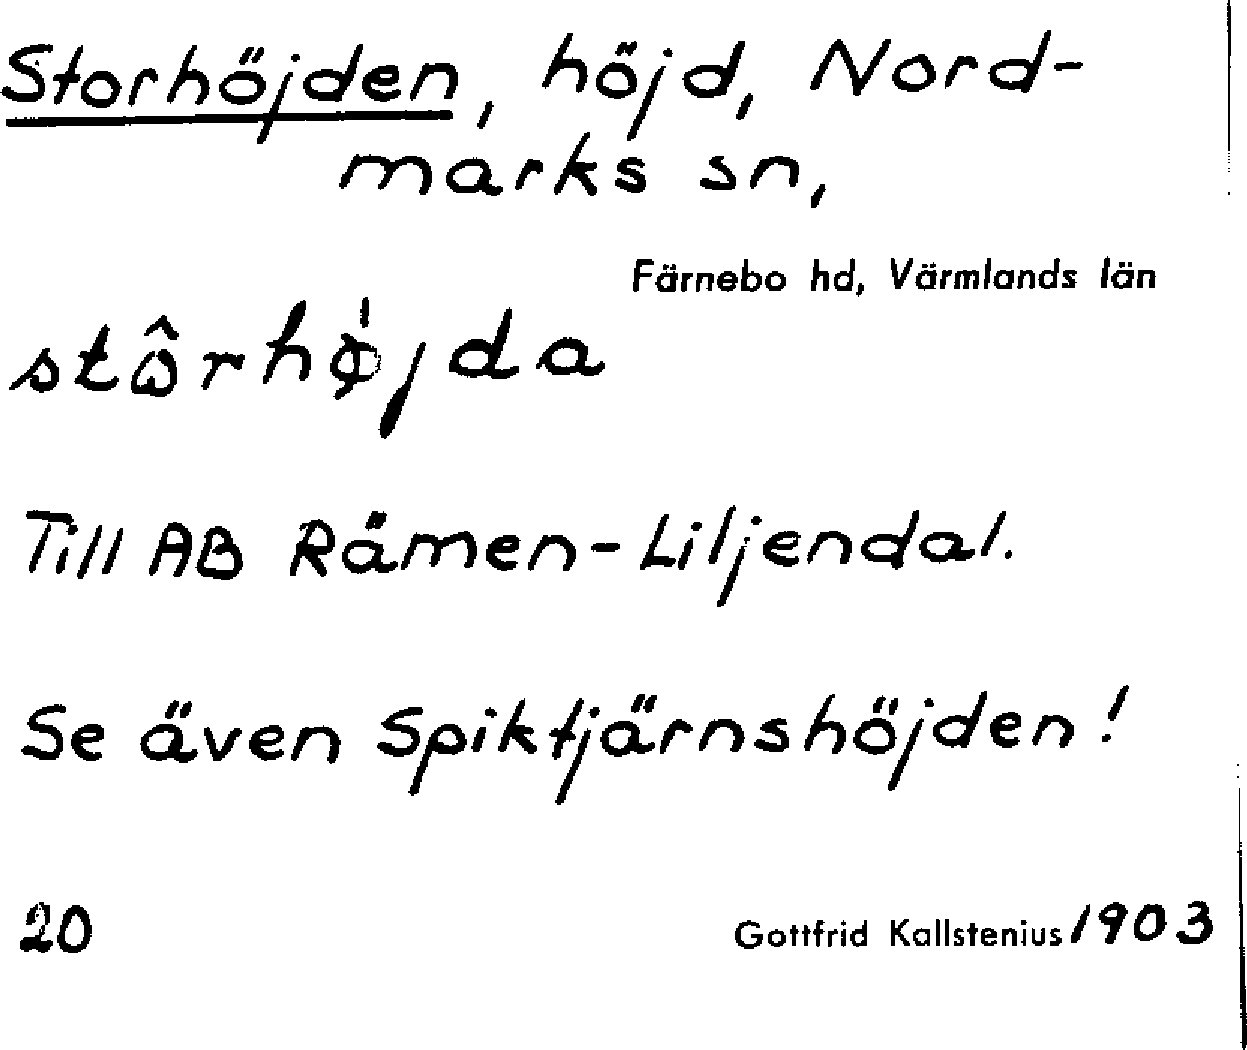 Storhöjden, höjd, Nord-
marks sn,
Färnebo hd, Värmlands län
stôrhø̍jda
Till AB Rämen-Liljendal.
Se även Spiktjärnshöjden!
20
Gottfrid Kallstenius 1903